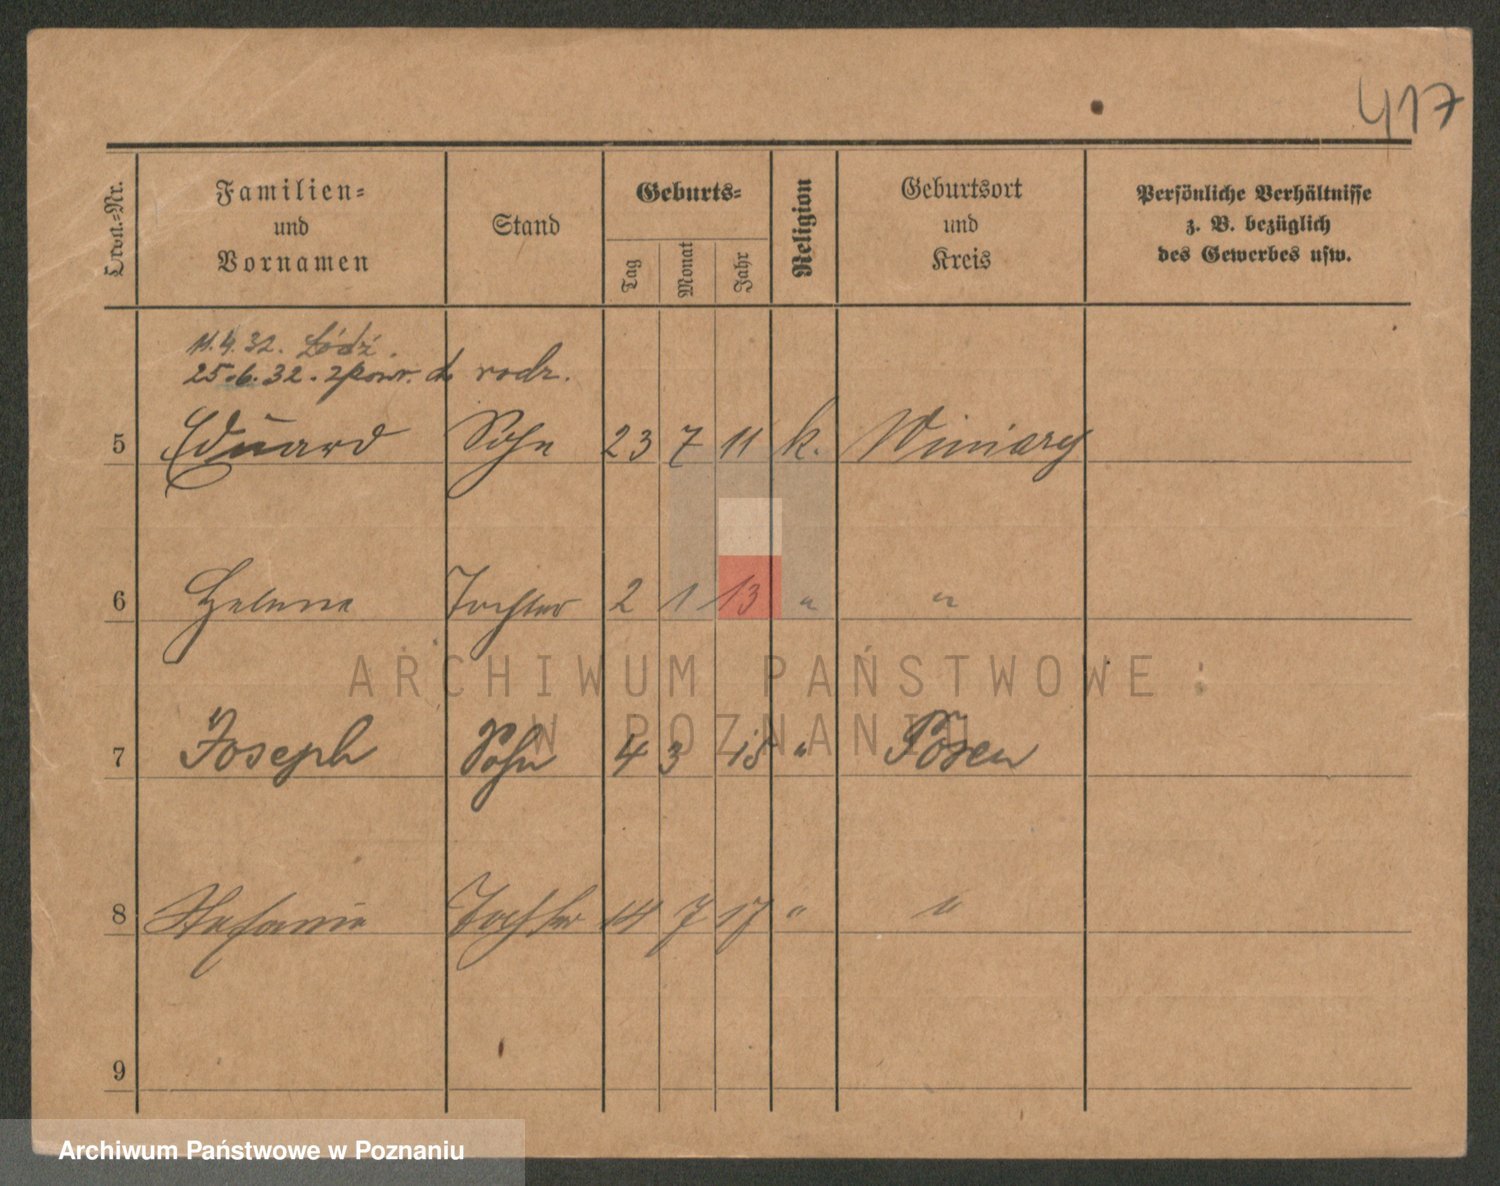 417
Ordn.-Nr. Familien- und Vornamen Stand Geburts- Tag Monat Jahr Religion Geburtsort und Kreis Persönliche Verhältnisse z. B. bezüglich des Gewerbes usw.
11.4.32. Łódź.
25.6.32. zpowr. do rodz.
5 Eduard Sohn 23 7 11 k. Winiary
6 Helene Tochter 2 1 13 " "
ARCHIWUM PAŃSTWOWE
W POZNANIU
7 Joseph Sohn 4 3 15 " Posen
8 Stefanie Tochter 14 7 17 " "
9
Archiwum Państwowe w Poznaniu